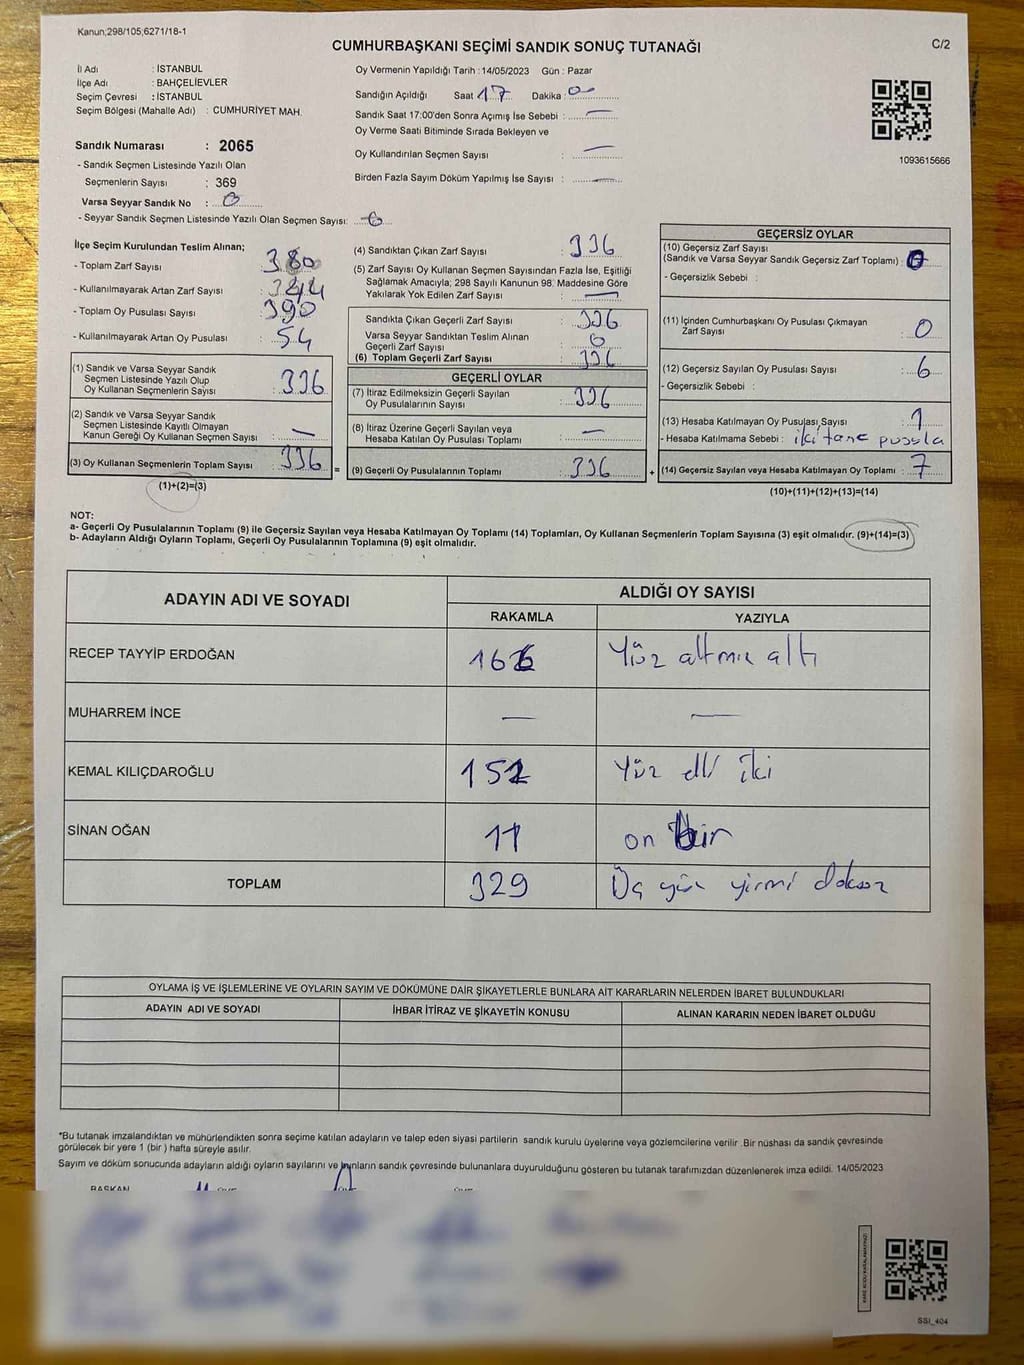 Kanun;298/105;6271/18-1
CUMHURBAŞKANI SEÇİMİ SANDIK SONUÇ TUTANAĞI
C/2
İl Adı : İSTANBUL
İlçe Adı : BAHÇELİEVLER
Seçim Çevresi : İSTANBUL
Seçim Bölgesi (Mahalle Adı) : CUMHURİYET MAH.
Sandık Numarası : 2065
- Sandık Seçmen Listesinde Yazılı Olan
Seçmenlerin Sayısı : 369
Varsa Seyyar Sandık No : 0
- Seyyar Sandık Seçmen Listesinde Yazılı Olan Seçmen Sayısı: 0
Oy Vermenin Yapıldığı Tarih : 14/05/2023 Gün : Pazar
Sandığın Açıldığı Saat 17 Dakika : 0
Sandık Saat 17:00'den Sonra Açımış İse Sebebi : —
Oy Verme Saati Bitiminde Sırada Bekleyen ve
Oy Kullandırılan Seçmen Sayısı : —
Birden Fazla Sayım Döküm Yapılmış İse Sayısı : —
1093615666
İlçe Seçim Kurulundan Teslim Alınan;
- Toplam Zarf Sayısı : 380
- Kullanılmayarak Artan Zarf Sayısı :
- Toplam Oy Pusulası Sayısı : 390
- Kullanılmayarak Artan Oy Pusulası : 54
(1) Sandık ve Varsa Seyyar Sandık
Seçmen Listesinde Yazılı Olup
Oy Kullanan Seçmenlerin Sayısı : 336
(2) Sandık ve Varsa Seyyar Sandık
Seçmen Listesinde Kayıtlı Olmayan
Kanun Gereği Oy Kullanan Seçmen Sayısı : —
(3) Oy Kullanan Seçmenlerin Toplam Sayısı : 336 =
(1)+(2)=(3)
(4) Sandıktan Çıkan Zarf Sayısı : 336
(5) Zarf Sayısı Oy Kullanan Seçmen Sayısından Fazla İse, Eşitliği
Sağlamak Amacıyla; 298 Sayılı Kanunun 98. Maddesine Göre
Yakılarak Yok Edilen Zarf Sayısı : —
Sandıkta Çıkan Geçerli Zarf Sayısı : 336
Varsa Seyyar Sandıktan Teslim Alınan
Geçerli Zarf Sayısı : 0
(6) Toplam Geçerli Zarf Sayısı : 336
GEÇERLİ OYLAR
(7) İtiraz Edilmeksizin Geçerli Sayılan
Oy Pusulalarının Sayısı : 336
(8) İtiraz Üzerine Geçerli Sayılan veya
Hesaba Katılan Oy Pusulası Toplamı : —
(9) Geçerli Oy Pusulalarının Toplamı : 336 +
GEÇERSİZ OYLAR
(10) Geçersiz Zarf Sayısı
(Sandık ve Varsa Seyyar Sandık Geçersiz Zarf Toplamı) : 0
- Geçersizlik Sebebi :
(11) İçinden Cumhurbaşkanı Oy Pusulası Çıkmayan
Zarf Sayısı : 0
(12) Geçersiz Sayılan Oy Pusulası Sayısı : 6
- Geçersizlik Sebebi :
(13) Hesaba Katılmayan Oy Pusulası Sayısı : 1
- Hesaba Katılmama Sebebi : iki tane pusula
(14) Geçersiz Sayılan veya Hesaba Katılmayan Oy Toplamı : 7
(10)+(11)+(12)+(13)=(14)
NOT:
a- Geçerli Oy Pusulalarının Toplamı (9) ile Geçersiz Sayılan veya Hesaba Katılmayan Oy Toplamı (14) Toplamları, Oy Kullanan Seçmenlerin Toplam Sayısına (3) eşit olmalıdır. (9)+(14)=(3)
b- Adayların Aldığı Oyların Toplamı, Geçerli Oy Pusulalarının Toplamına (9) eşit olmalıdır.
ADAYIN ADI VE SOYADI
ALDIĞI OY SAYISI
RAKAMLA YAZIYLA
RECEP TAYYİP ERDOĞAN 166 Yüz altmış altı
MUHARREM İNCE — —
KEMAL KILIÇDAROĞLU 152 Yüz elli iki
SİNAN OĞAN 11 on bir
TOPLAM 329 Üç yüz yirmi dokuz
OYLAMA İŞ VE İŞLEMLERİNE VE OYLARIN SAYIM VE DÖKÜMÜNE DAİR ŞİKAYETLERLE BUNLARA AİT KARARLARIN NELERDEN İBARET BULUNDUKLARI
ADAYIN ADI VE SOYADI İHBAR İTİRAZ VE ŞİKAYETİN KONUSU ALINAN KARARIN NEDEN İBARET OLDUĞU
*Bu tutanak imzalandıktan ve mühürlendikten sonra seçime katılan adayların ve talep eden siyasi partilerin sandık kurulu üyelerine veya gözlemcilerine verilir .Bir nüshası da sandık çevresinde
görülecek bir yere 1 (bir ) hafta süreyle asılır.
Sayım ve döküm sonucunda adayların aldığı oyların sayılarını ve bunların sandık çevresinde bulunanlara duyurulduğunu gösteren bu tutanak tarafımızdan düzenlenerek imza edildi. 14/05/2023
BAŞKAN
KARE KODU KARALAMAYINIZ!
SSI_404